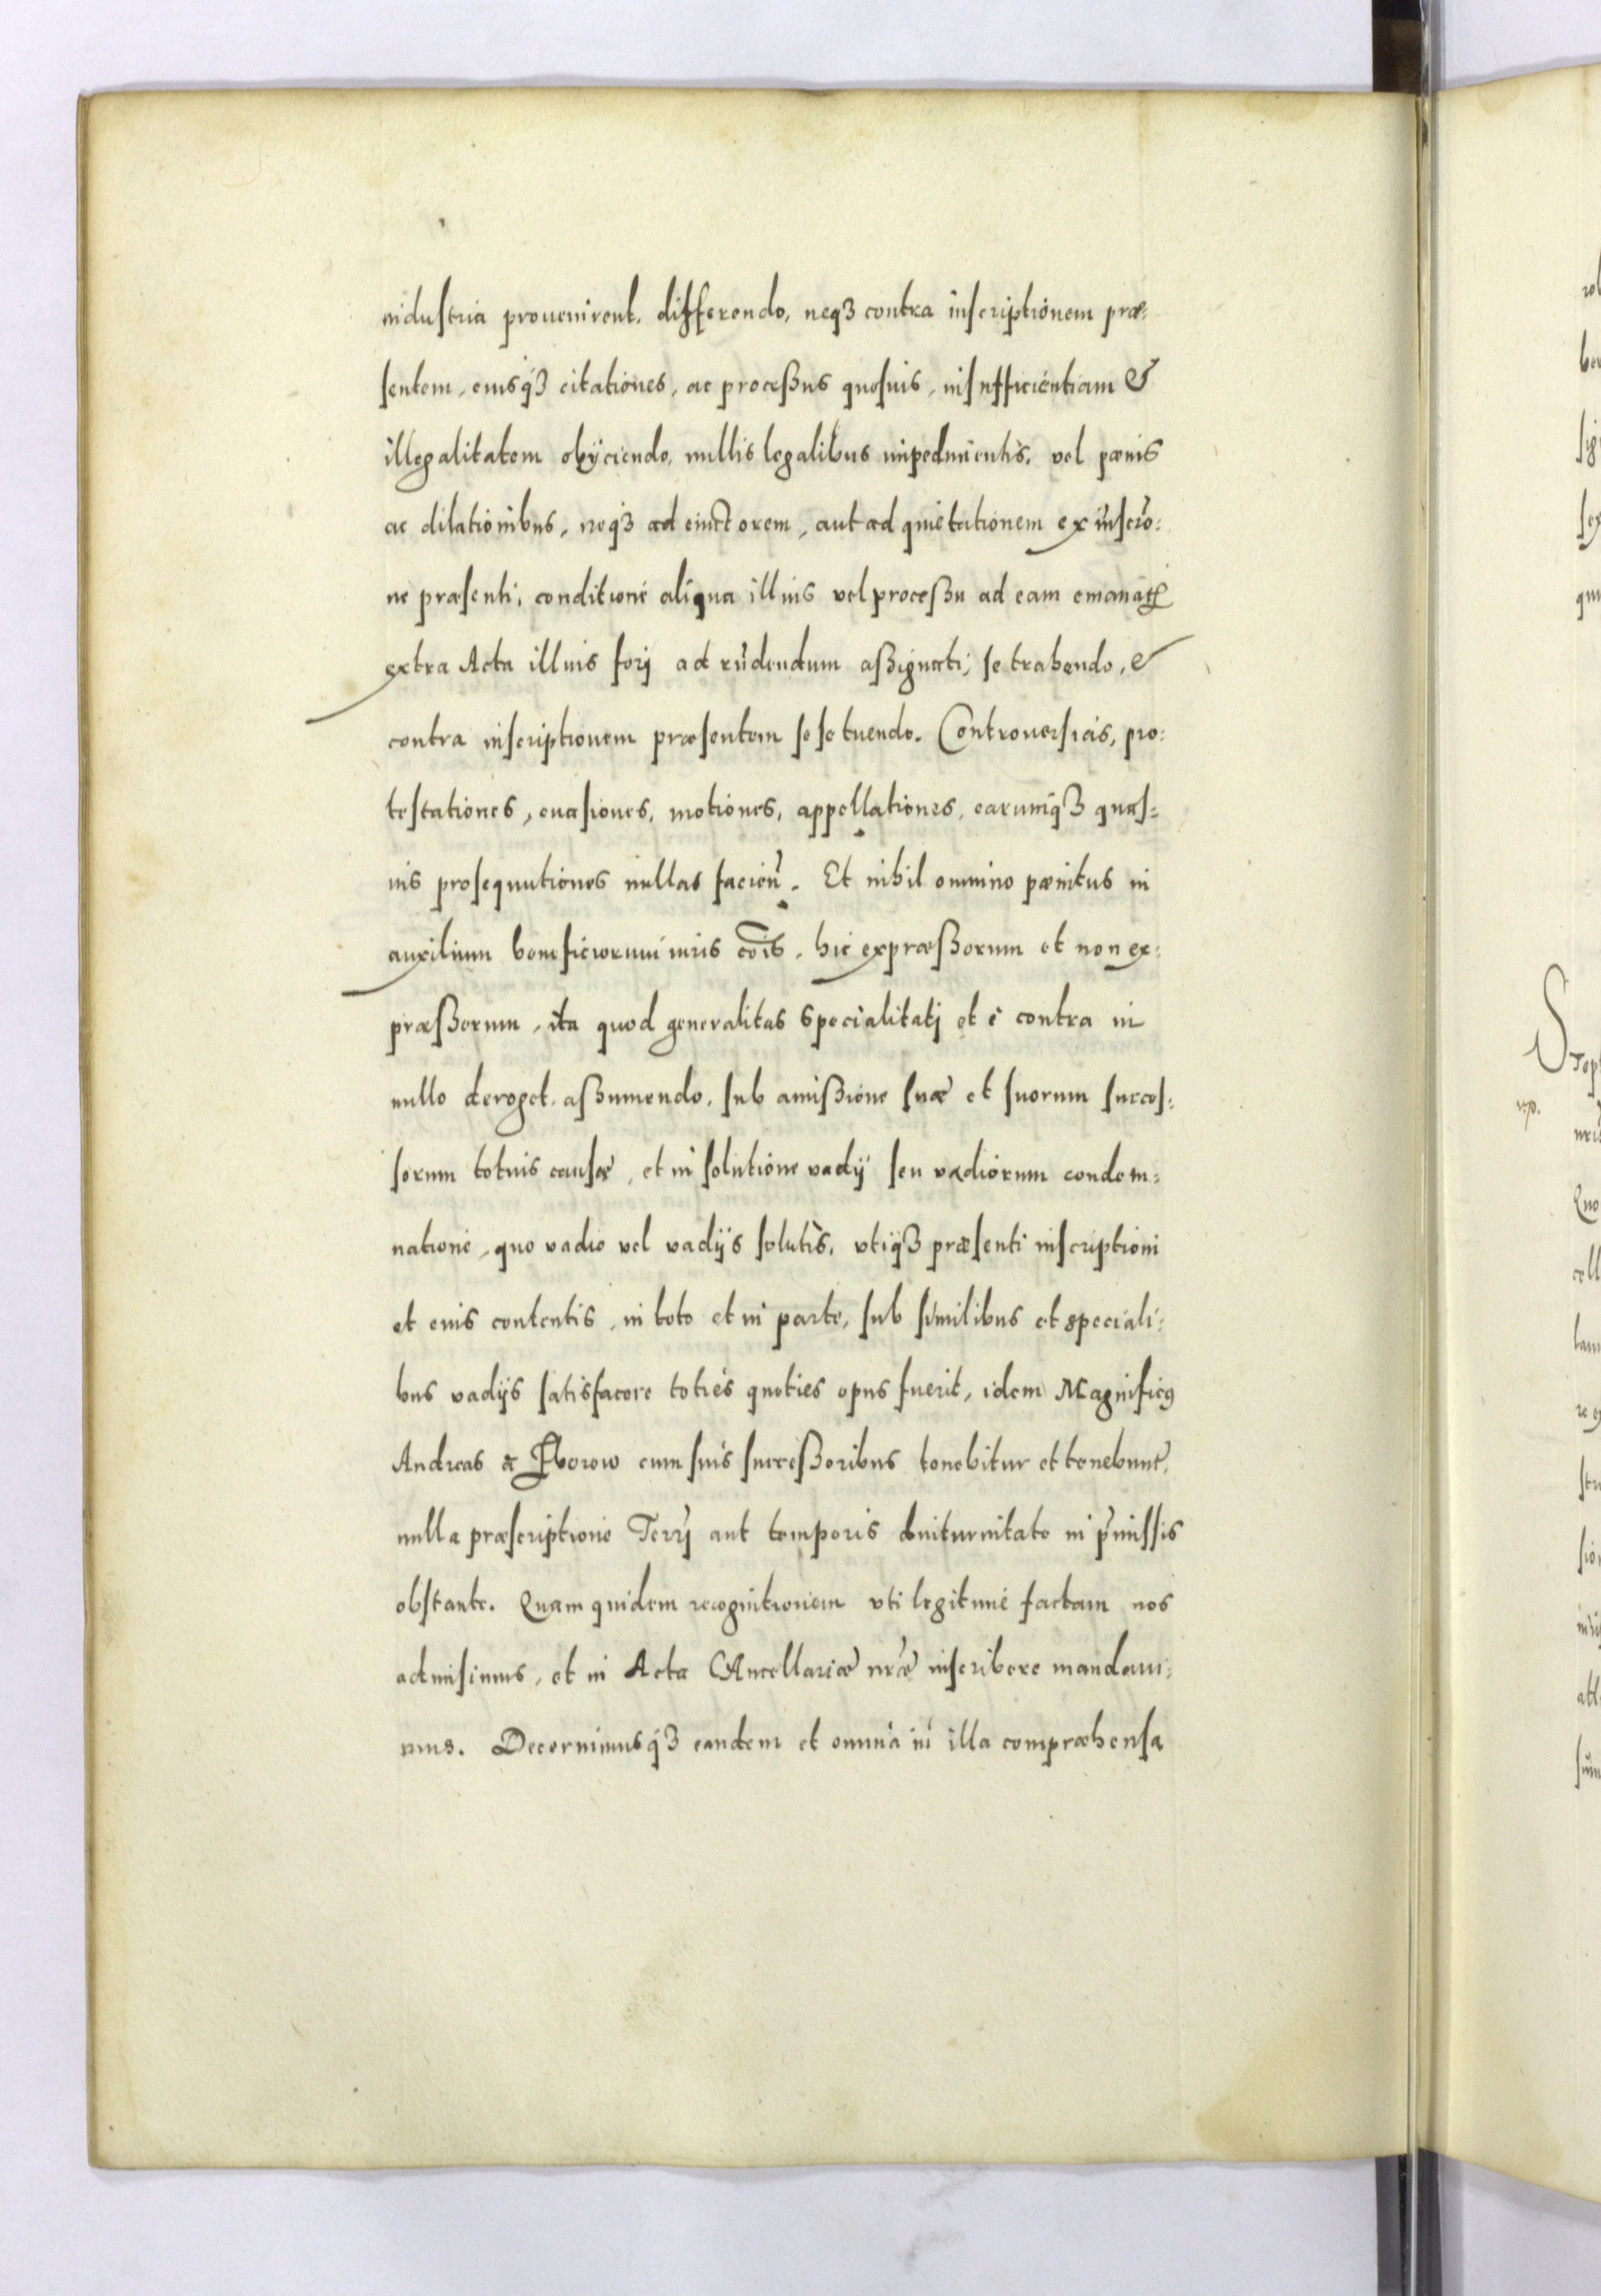 industria prouenirent. differendo, neqȝ contra inscriptionem præ:
sentem, eiusqȝ citationes, ac proceßus quosuis, insufficientiam &
illegalitatem obijciendo, nullis legalibus impedimentis, vel pænis
ac dilationibus, neqȝ ad euictorem, aut ad quietationem ex inscrõ:
ne præsenti, conditione aliqua illius vel proceßu ad eam emanatꝝ
extra Acta illius forj ad rñdendum aßignati, se trahendo, &
contra inscriptionem præsentem se se tuendo. Controuersias, pro:
testationes, euasiones, motiones, appellationes, earumqȝ quas:
uis prosequutiones nullas facień. Et nihil omnino pænitus in
auxilium beneficiorum iuris cõis, hic expræßorum et non ex:
præßorum, ita quod generalitas specialitatj et e contra in
nullo deroget, aßumendo, sub amißione suæ et suorum succes:
sorum totius causæ, et in solutione vadij seu vadiorum condem:
natione, quo vadio vel vadijs solutis, vtiqȝ præsenti inscriptioni
et eius contentis, in toto et in parte, sub similibus et speciali:
bus vadijs satisfacere toties quoties opus fuerit, idem Magnificꝰ
Andreas a Zborow cum suis succeßoribus tenebitur et tenebunt̃,
nulla præscriptione Terrj aut temporis diuiturnitate in p̃missis
obstante. Quam quidem recognitionem vti legitimè factam nos
admisimus, et in Acta Cancellariæ nr̃æ inscribere mandaui:
mus. Decernimusqȝ eandem et omnia in illa compræhensa